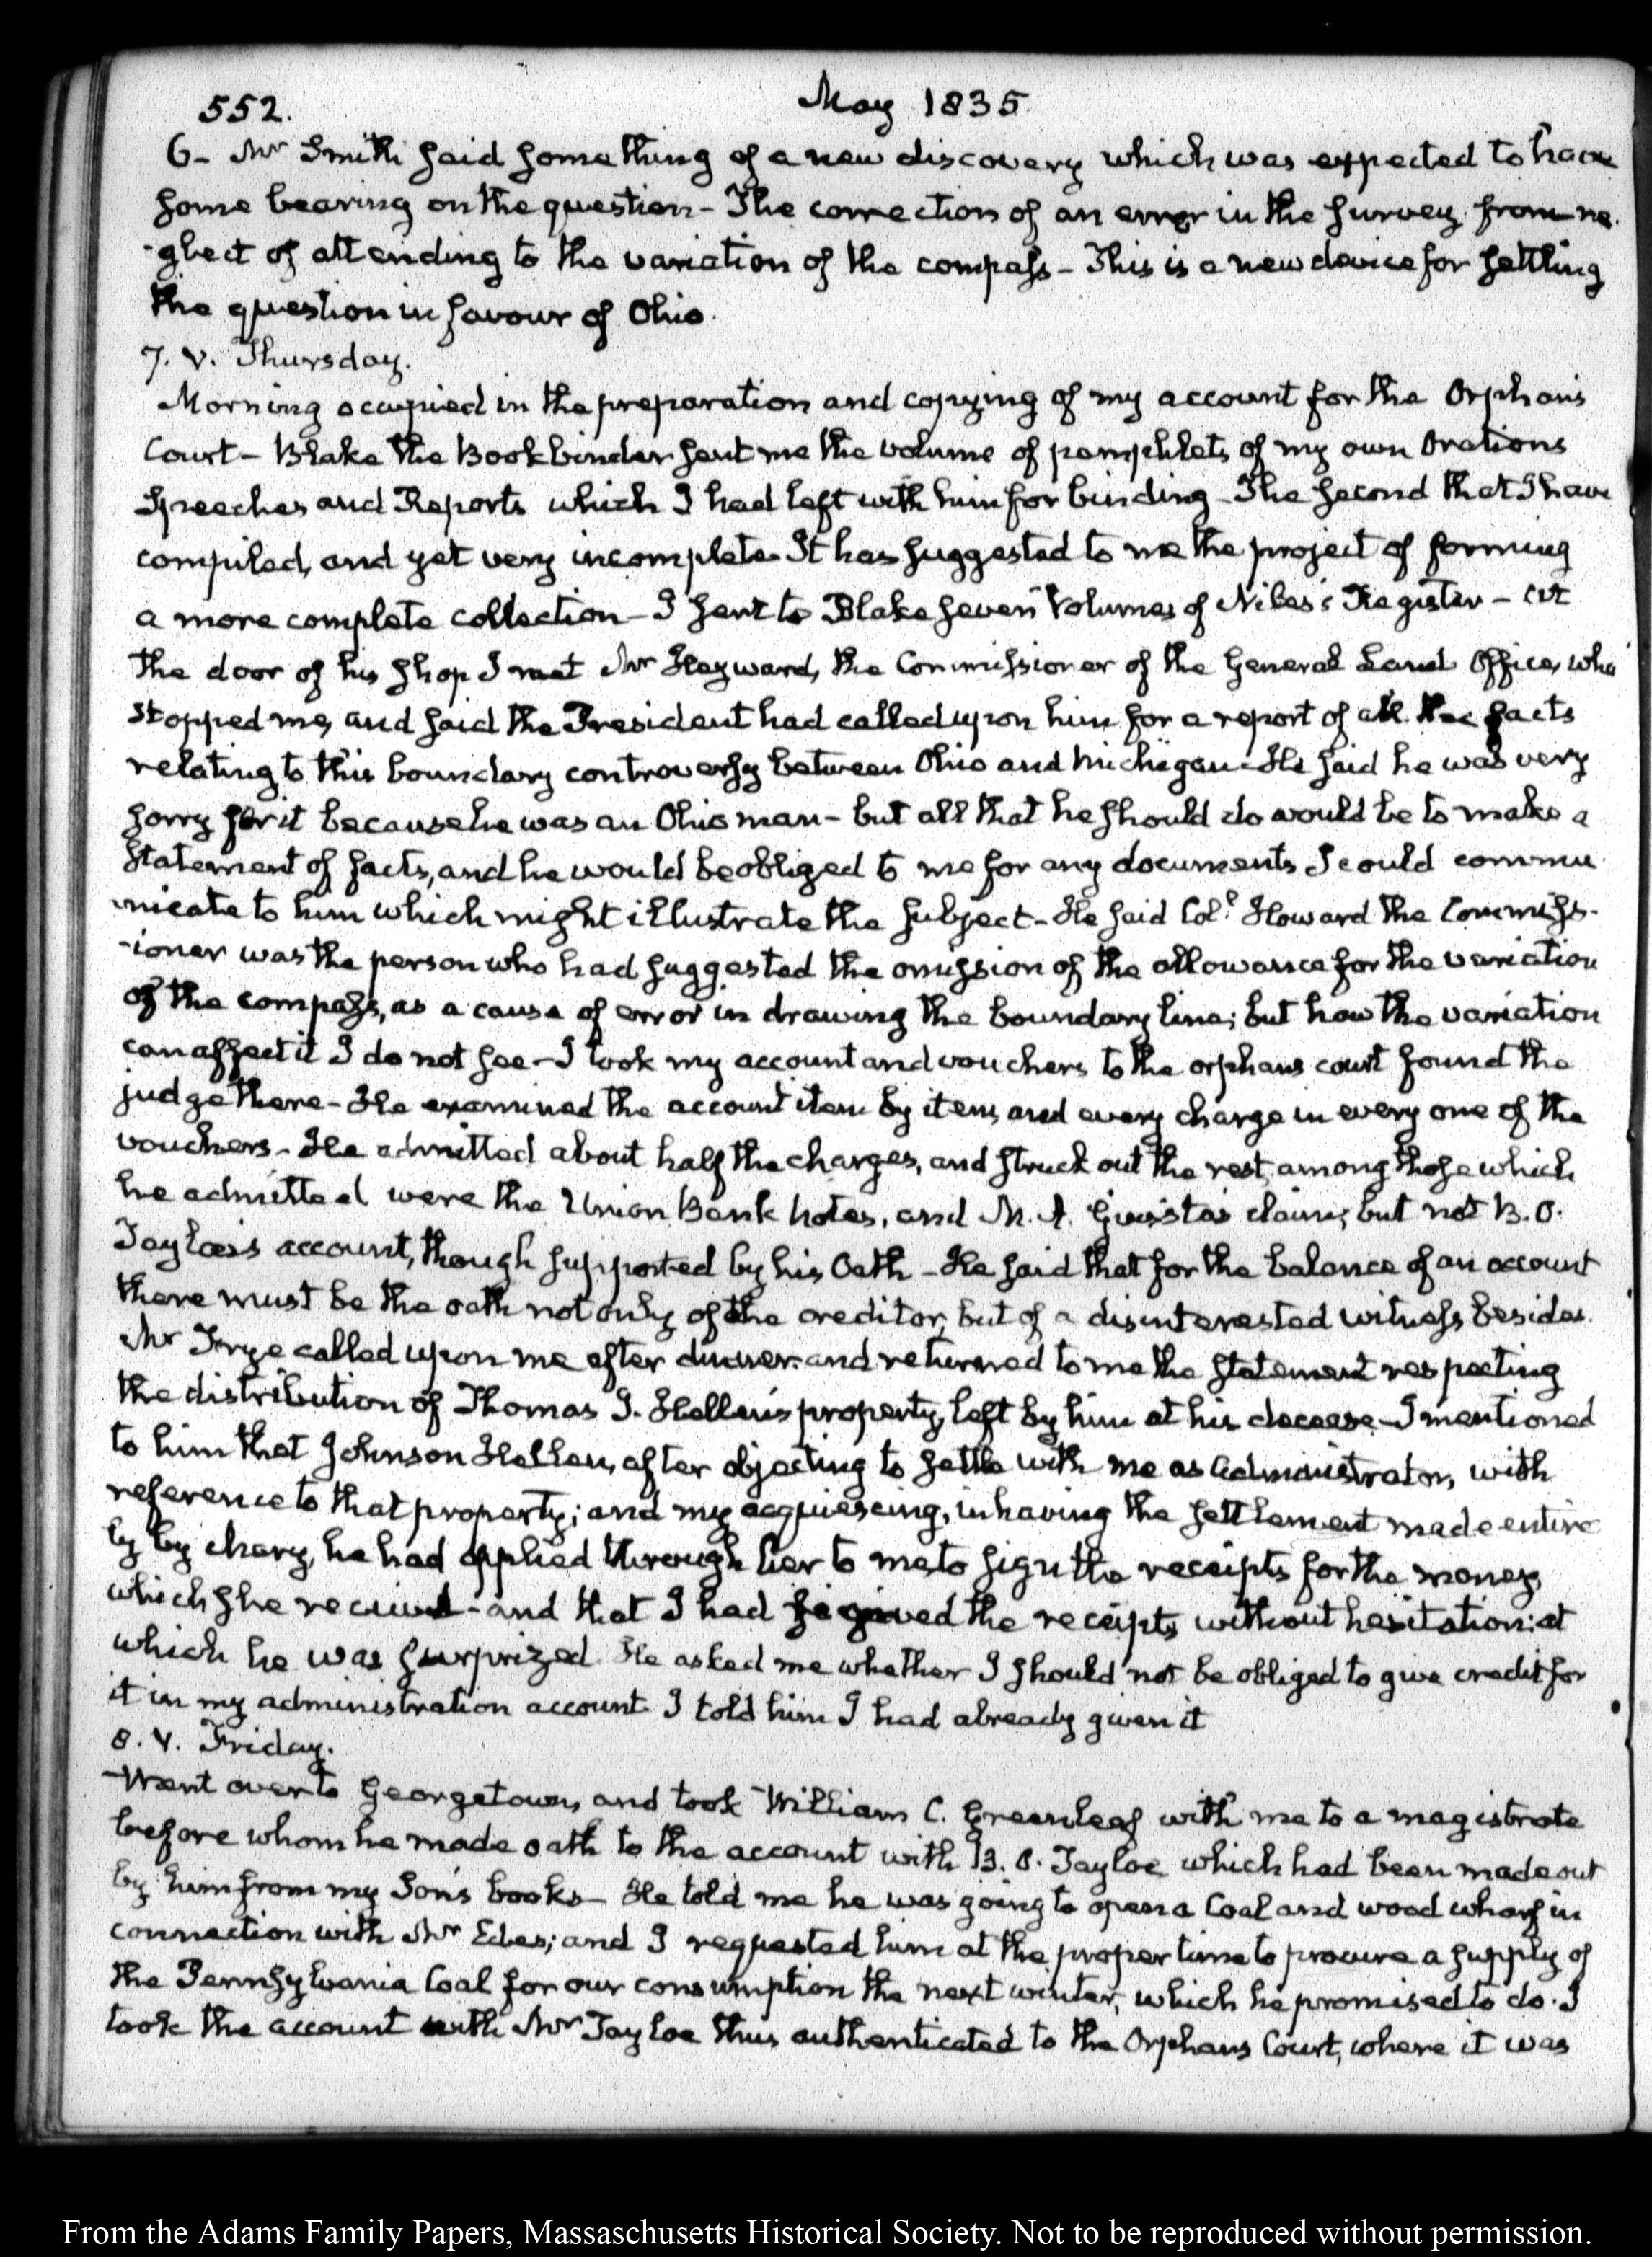 552. May 1835.
6- Mr Smith said something of a new discovery which was expected to have
some bearing on the question - The correction of an error in the survey from ne-
-glect of attending to the variation of the compass - This is a new device for settling
the question in favour of Ohio.
7. V. Thursday.
Morning occupied in the preparation and copying of my account for the Orphan's
Court - Blake the Bookbinder sent me the volume of pamphlets of my own Orations
Speeches and Reports which I had left with him for binding - The second that I have
compiled, and yet very incomplete. It has suggested to me the project of forming
a more complete collection - I sent to Blake seven Volumes of Niles's Register - At
the door of his shop I met Mr Hayward, the Commissioner of the General Land Office, who
stopped me, and said the President had called upon him for a report of all the facts
relating to this boundary controversy between Ohio and Michigan - He said he was very
sorry for it because he was an Ohio man - but all that he should do would be to make a
statement of facts, and he would be obliged to me for any documents I could commu-
-nicate to him which might illustrate the subject - He said Col. Howard the Commiss-
-ioner was the person who had suggested the omission of the allowance for the variation
of the compass, as a cause of error in drawing the boundary line; but how the variation
can affect it I do not see - I took my account and vouchers to the orphans court found the
judge there - He examined the account item by item, and every charge in every one of the
vouchers - He admitted about half the charges, and struck out the rest, among those which
he admitted were the Union Bank notes, and M. A. Guista's claim; but not B. O.
Tayloe's account, though supported by his Oath - He said that for the balance of an account
there must be the oath not only of the creditor, but of a disinterested witness besides.
Mr Frye called upon me after dinner and returned to me the statement respecting
the distribution of Thomas J. Hellen's property, left by him at his decease - I mentioned
to him that Johnson Hellen, after objecting to settle with me as administrator, with
reference to that property; and my acquiescing, in having the settlement made entire
ly by chary, he had applied through her to me to sign the receipts for the money,
which she received - and that I had signed the receipts without hesitation: at
which he was surprized. He asked me whether I should not be obliged to give credit for
it in my administration account. I told him I had already given it
8. V. Friday.
Went over to Georgetown, and took William C. Greenleaf with me to a magistrate
before whom he made oath to the account with B. O. Tayloe which had been made out
by him from my Son's books - He told me he was going to open a Coal and wood wharf in
connection with Mr Edes; and I requested him at the proper time to procure a supply of
the Pennsylvania Coal for our consumption the next winter, which he promised to do. I
took the account with Mr Tayloe thus authenticated to the Orphans Court, where it was
From the Adams Family Papers, Massachusetts Historical Society. Not to be reproduced without permission.